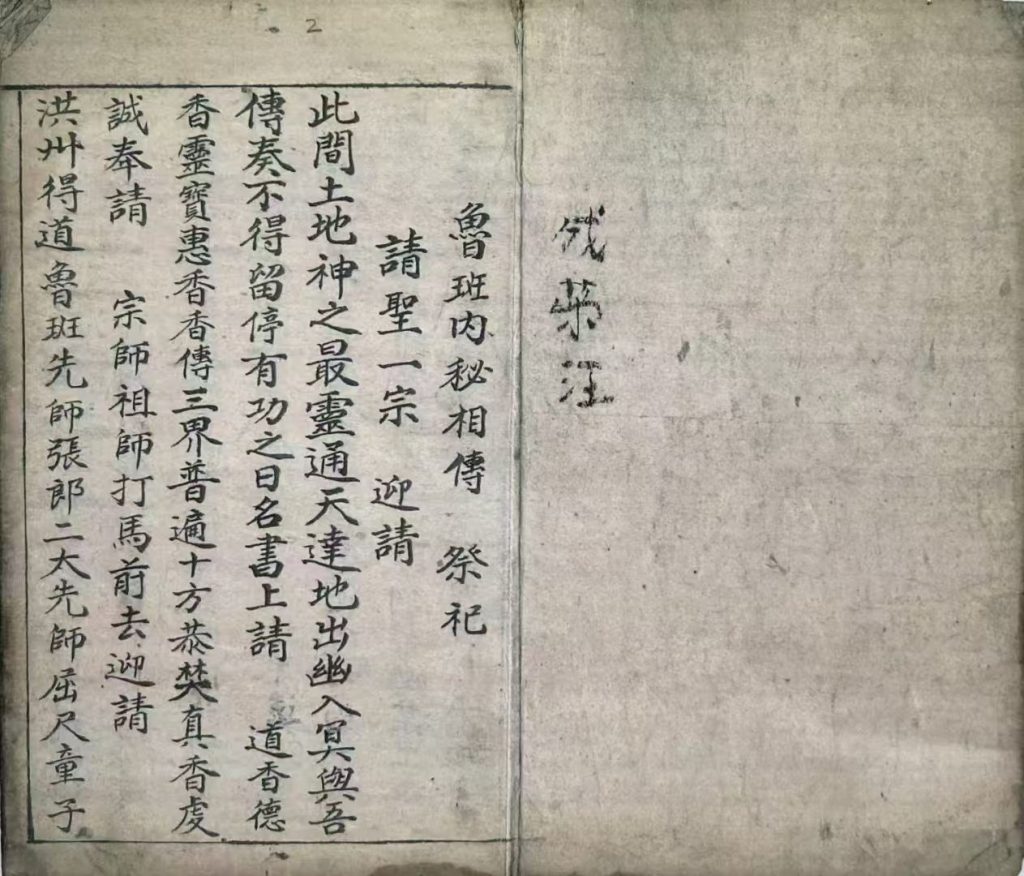 魯班内秘相傳 祭祀
請聖一宗 迎請
此間土地神之最靈通天達地出幽入冥與吾
傳奏不得留停有功之日名書上請 道香德
香靈寳惠香香傳三界普遍十方恭焚真香虔
誠奉請 宗師祖師打馬前去迎請
洪州得道魯班先師張郎二大先師屈尺童子
2